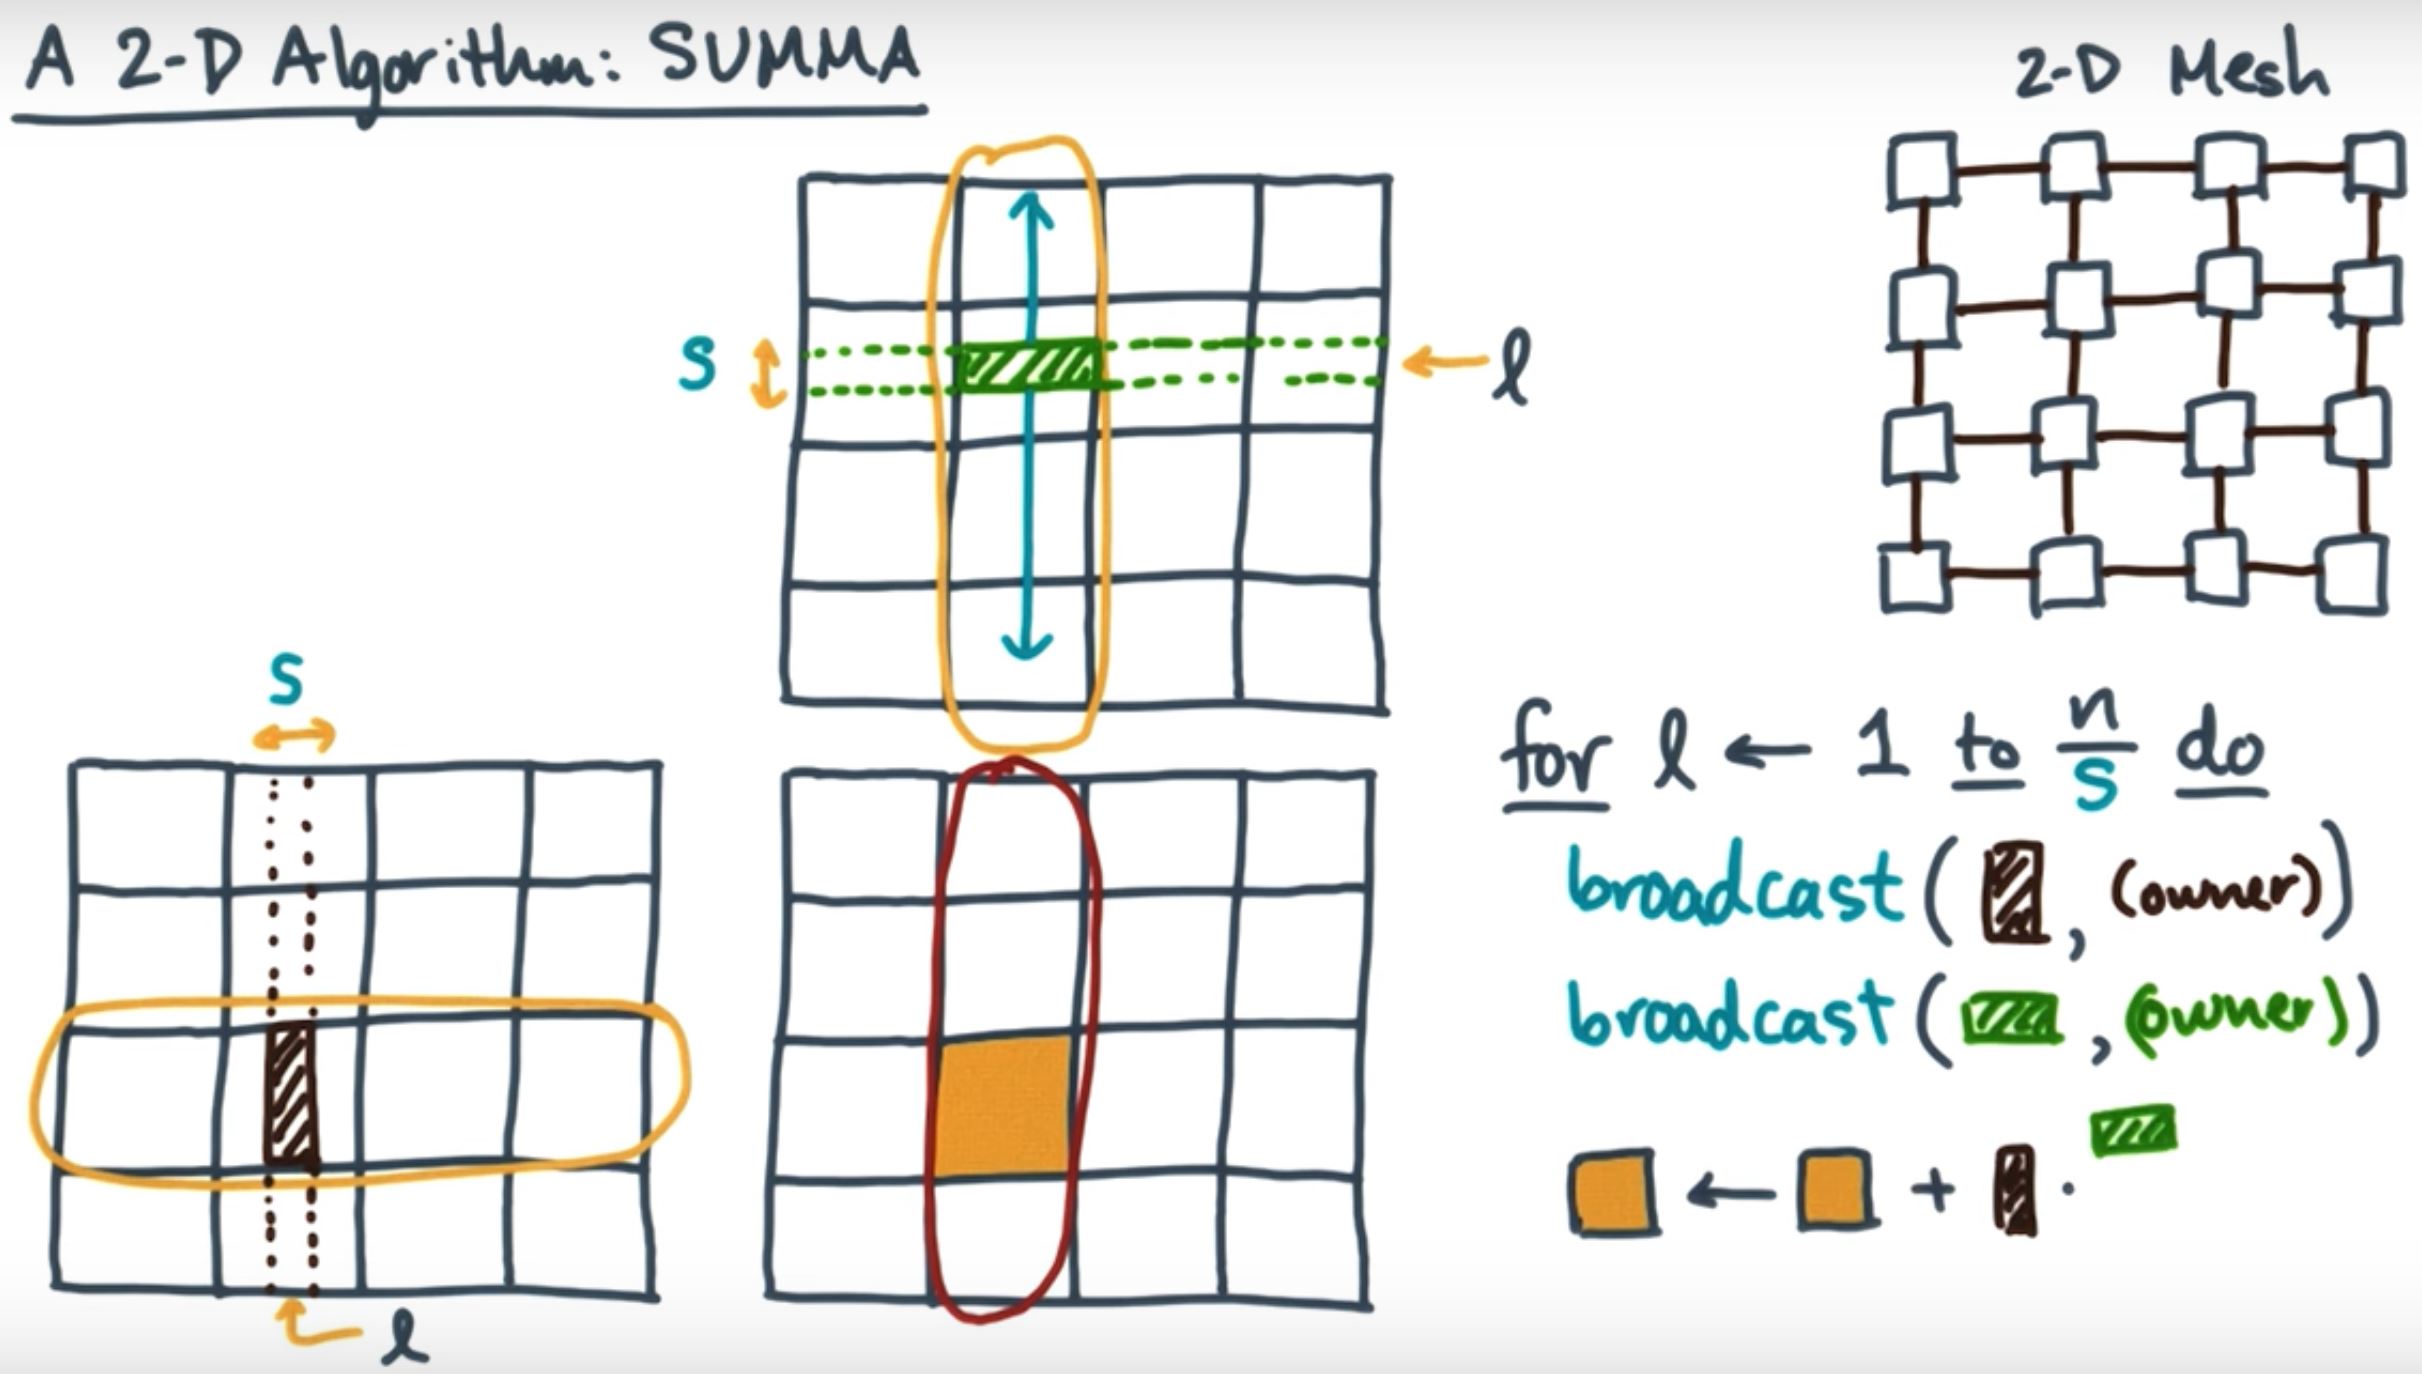 A 2-D Algorithm: SUMMA
2-D Mesh
S
l
S
l
for l ← 1 to n/s do
broadcast( , (owner))
broadcast( , (owner))
← + ·